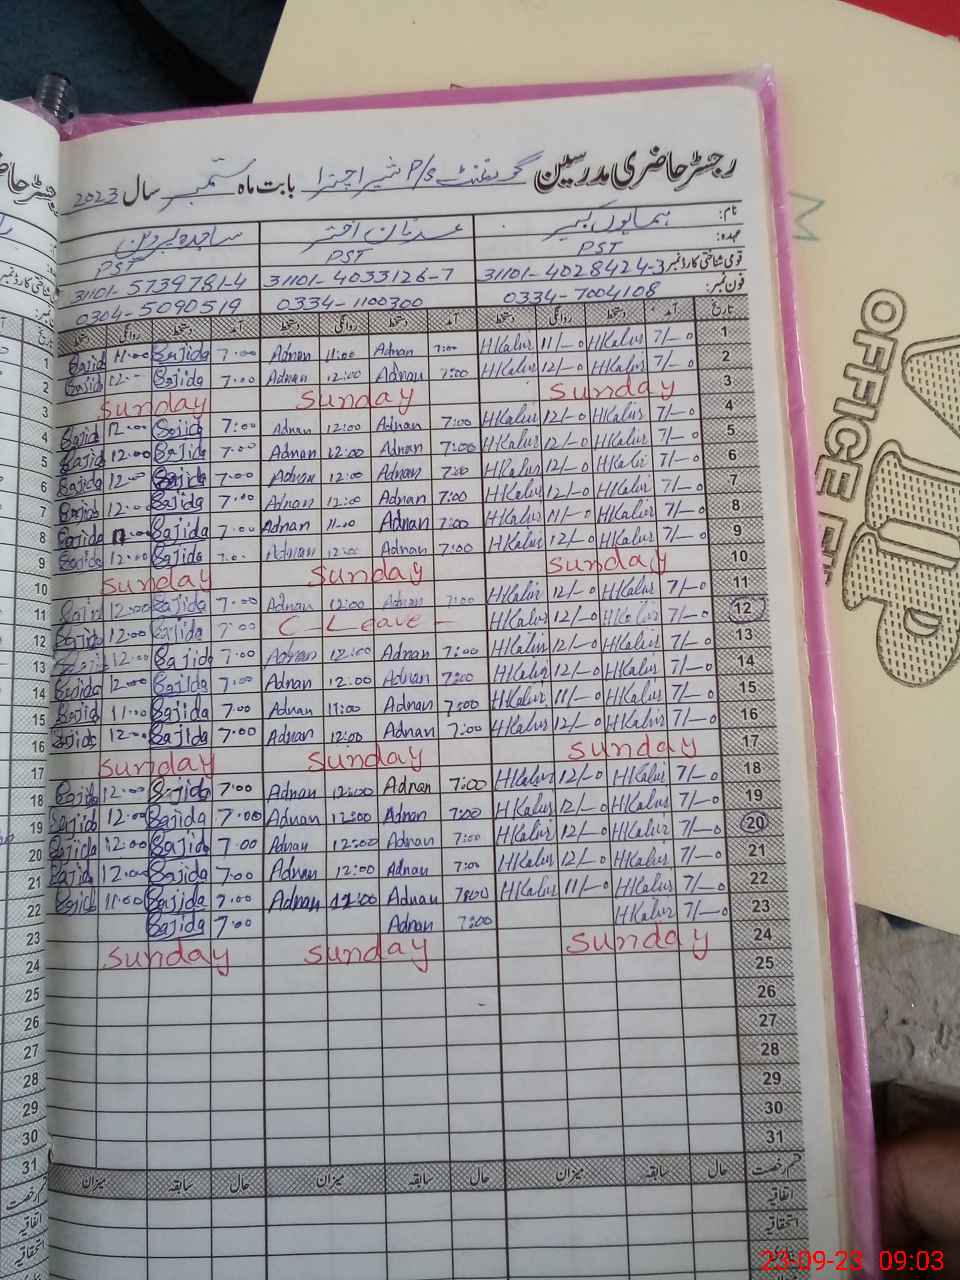 رجسٹر حاضری مدرسین گورنمنٹ P/S شیرا چنڑا بابت ماہ ستمبر سال 2023
نام: ہمایوں کبیر عدنان اختر ساجدہ پروین
عہدہ: PST PST PST
قومی شناختی کارڈ نمبر 31101-4028424-3 31101-4033126-7 31101-5739781-4
فون نمبر: 0334-7004108 0334-1100300 0304-5090519
تاریخ آمد دستخط روانگی دستخط آمد دستخط روانگی دستخط آمد دستخط روانگی دستخط
1 7/—0 HKabir 11/—0 HKabir 7:00 Adnan 11:00 Adnan 7:00 Sajida 11:00 Sajid
2 7/—0 HKabir 12/—0 HKabir 7:00 Adnan 12:00 Adnan 7:00 Sajida 12:00 Sajid
3 Sunday Sunday Sunday
4 7/—0 HKabir 12/—0 HKabir 7:00 Adnan 12:00 Adnan 7:00 Sajid 12:00 Sajid
5 7/—0 HKabir 12/—0 HKabir 7:00 Adnan 12:00 Adnan 7:00 Sajida 12:00 Sajid
6 7/—0 HKabir 12/—0 HKabir 7:00 Adnan 12:00 Adnan 7:00 Sajida 12:00 Sajid
7 7/—0 HKabir 12/—0 HKabir 7:00 Adnan 12:00 Adnan 7:00 Sajida 12:00 Sajid
8 7/—0 HKabir 11/—0 HKabir 7:00 Adnan 11:00 Adnan 7:00 Sajida Sajida
9 7/—0 HKabir 12/—0 HKabir 7:00 Adnan 12:00 Adnan 7:00 Sajida 12:00 Sajida
10 Sunday Sunday Sunday
11 7/—0 HKabir 12/—0 HKabir 7:00 Adnan 12:00 Adnan 7:00 Sajida 12:00 Sajid
12 7/—0 HKabir 12/—0 HKabir C - Leave - 7:00 Sajida 12:00 Sajida
13 7/—0 HKabir 12/—0 HKabir 7:00 Adnan 12:00 Adnan 7:00 Sajida 12:00 Sajid
14 7/—0 HKabir 12/—0 HKabir 7:00 Adnan 12:00 Adnan 7:00 Sajida 12:00 Sajida
15 7/—0 HKabir 11/—0 HKabir 7:00 Adnan 11:00 Adnan 7:00 Sajida 11:00 Sajid
16 7/—0 HKabir 12/—0 HKabir 7:00 Adnan 12:00 Adnan 7:00 Sajida 12:00 Sajida
17 Sunday Sunday Sunday
18 7/—0 HKabir 12/—0 HKabir 7:00 Adnan 12:00 Adnan 7:00 Sajida 12:00 Sajid
19 7/—0 HKabir 12/—0 HKabir 7:00 Adnan 12:00 Adnan 7:00 Sajida 12:00 Sajid
20 7/—0 HKabir 12/—0 HKabir 7:00 Adnan 12:00 Adnan 7:00 Sajida 12:00 Sajida
21 7/—0 HKabir 12/—0 HKabir 7:00 Adnan 12:00 Adnan 7:00 Sajida 12:00 Sajida
22 7/—0 HKabir 11/—0 HKabir 7:00 Adnan 11:00 Adnan 7:00 Sajida 11:00 Sajid
23 7/—0 HKabir 7:00 Adnan 7:00 Sajida
24 Sunday Sunday Sunday
25
26
27
28
29
30
31
قسم رخصت حال سابقہ میزان حال سابقہ میزان حال سابقہ میزان
اتفاقیہ
استحقاقیہ
VIP
OFFICE
23-09-23 09:03